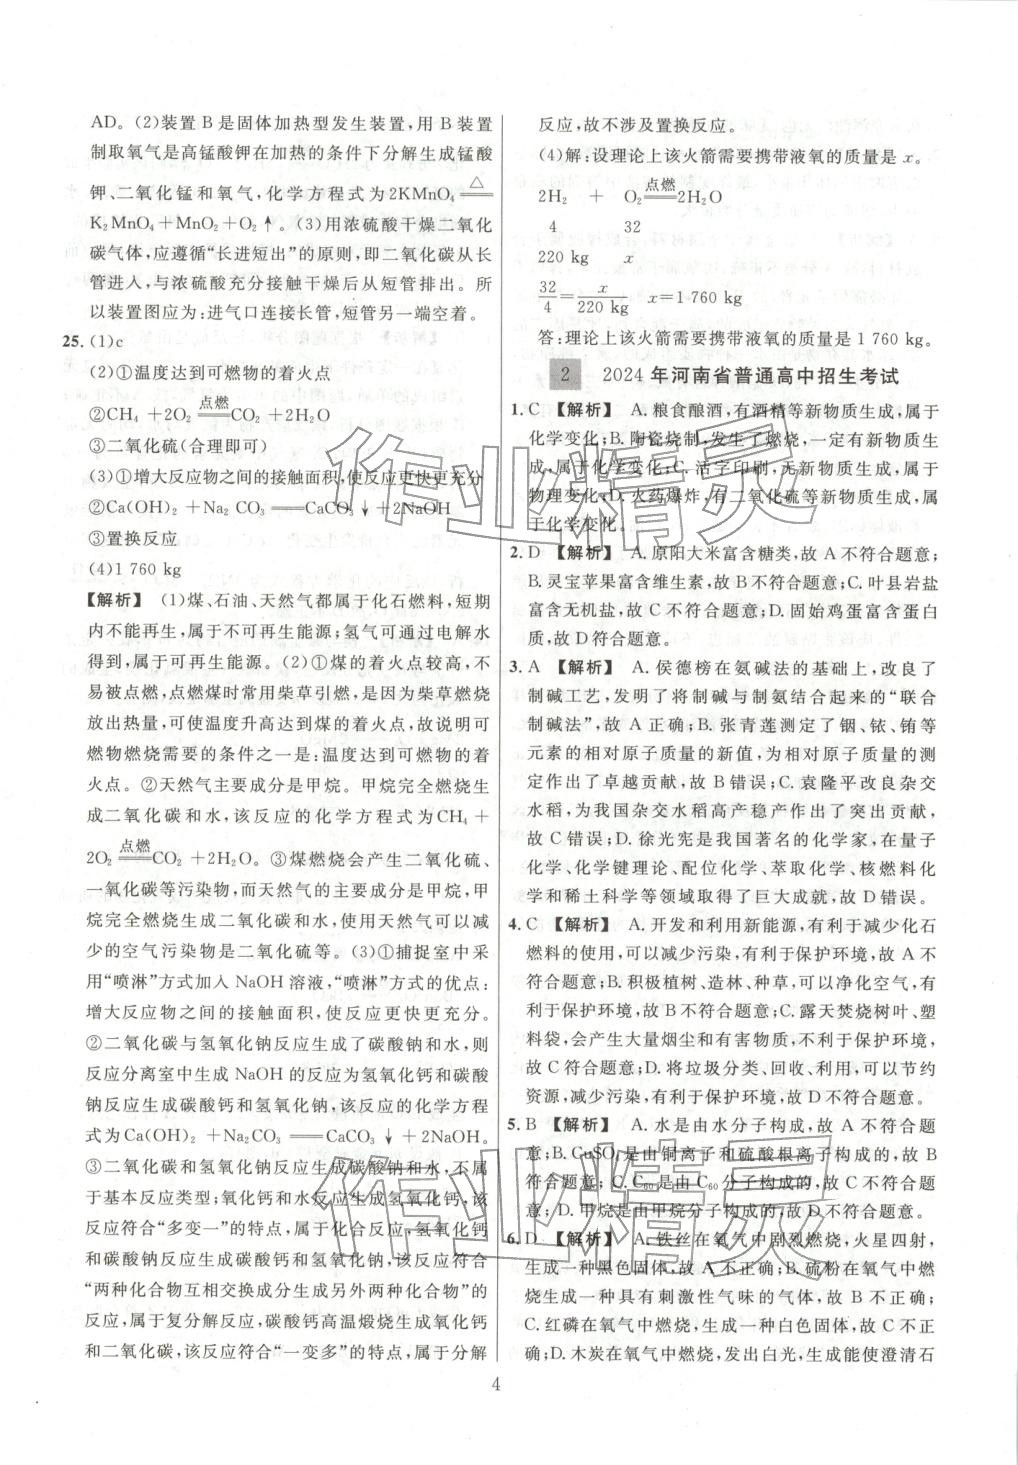 AD。(2)装置 B 是固体加热型发生装置,用 B 装置
制取氧气是高锰酸钾在加热的条件下分解生成锰酸
钾、二氧化锰和氧气,化学方程式为2KMnO₄ ══△══
K₂MnO₄+MnO₂+O₂↑。(3)用浓硫酸干燥二氧化
碳气体,应遵循“长进短出”的原则,即二氧化碳从长
管进入,与浓硫酸充分接触干燥后从短管排出。所
以装置图应为:进气口连接长管,短管另一端空着。
25. (1)c
(2)①温度达到可燃物的着火点
②CH₄+2O₂ ══点燃══ CO₂+2H₂O
③二氧化硫(合理即可)
(3)①增大反应物之间的接触面积,使反应更快更充分
②Ca(OH)₂+Na₂CO₃══CaCO₃↓+2NaOH
③置换反应
(4)1 760 kg
【解析】 (1)煤、石油、天然气都属于化石燃料,短期
内不能再生,属于不可再生能源;氢气可通过电解水
得到,属于可再生能源。(2)①煤的着火点较高,不
易被点燃,点燃煤时常用柴草引燃,是因为柴草燃烧
放出热量,可使温度升高达到煤的着火点,故说明可
燃物燃烧需要的条件之一是:温度达到可燃物的着
火点。②天然气主要成分是甲烷。甲烷完全燃烧生
成二氧化碳和水,该反应的化学方程式为CH₄+
2O₂ ══点燃══ CO₂+2H₂O。③煤燃烧会产生二氧化硫、
一氧化碳等污染物,而天然气的主要成分是甲烷,甲
烷完全燃烧生成二氧化碳和水,使用天然气可以减
少的空气污染物是二氧化硫等。(3)①捕捉室中采
用“喷淋”方式加入 NaOH 溶液,“喷淋”方式的优点:
增大反应物之间的接触面积,使反应更快更充分。
②二氧化碳与氢氧化钠反应生成了碳酸钠和水,则
反应分离室中生成 NaOH 的反应为氢氧化钙和碳酸
钠反应生成碳酸钙和氢氧化钠,该反应的化学方程
式为Ca(OH)₂+Na₂CO₃══CaCO₃↓+2NaOH。
③二氧化碳和氢氧化钠反应生成碳酸钠和水,不属
于基本反应类型;氧化钙和水反应生成氢氧化钙,该
反应符合“多变一”的特点,属于化合反应,氢氧化钙
和碳酸钠反应生成碳酸钙和氢氧化钠,该反应符合
“两种化合物互相交换成分生成另外两种化合物”的
反应,属于复分解反应,碳酸钙高温煅烧生成氧化钙
和二氧化碳,该反应符合“一变多”的特点,属于分解
反应,故不涉及置换反应。
(4)解:设理论上该火箭需要携带液氧的质量是 x。
2H₂ + O₂ ══点燃══ 2H₂O
4 32
220 kg x
32/4=x/220 kg x=1 760 kg
答:理论上该火箭需要携带液氧的质量是 1 760 kg。
2 2024 年河南省普通高中招生考试
1. C 【解析】 A. 粮食酿酒,有酒精等新物质生成,属于
化学变化;B. 陶瓷烧制,发生了燃烧,一定有新物质生
成,属于化学变化;C. 活字印刷,无新物质生成,属于
物理变化;D. 火药爆炸,有二氧化硫等新物质生成,属
于化学变化。
2. D 【解析】 A. 原阳大米富含糖类,故 A 不符合题意;
B. 灵宝苹果富含维生素,故 B 不符合题意;C. 叶县岩盐
富含无机盐,故 C 不符合题意;D. 固始鸡蛋富含蛋白
质,故 D 符合题意。
3. A 【解析】 A. 侯德榜在氨碱法的基础上,改良了
制碱工艺,发明了将制碱与制氨结合起来的“联合
制碱法”,故 A 正确;B. 张青莲测定了铟、铱、铕等
元素的相对原子质量的新值,为相对原子质量的测
定作出了卓越贡献,故 B 错误;C. 袁隆平改良杂交
水稻,为我国杂交水稻高产稳产作出了突出贡献,
故 C 错误;D. 徐光宪是我国著名的化学家,在量子
化学、化学键理论、配位化学、萃取化学、核燃料化
学和稀土科学等领域取得了巨大成就,故 D 错误。
4. C 【解析】 A. 开发和利用新能源,有利于减少化石
燃料的使用,可以减少污染,有利于保护环境,故 A 不
符合题意;B. 积极植树、造林、种草,可以净化空气,有
利于保护环境,故 B 不符合题意;C. 露天焚烧树叶、塑
料袋,会产生大量烟尘和有害物质,不利于保护环境,
故 C 符合题意;D. 将垃圾分类、回收、利用,可以节约
资源,减少污染,有利于保护环境,故 D 不符合题意。
5. B 【解析】 A. 水是由水分子构成,故 A 不符合题
意;B. CuSO₄ 是由铜离子和硫酸根离子构成的,故 B
符合题意;C. C₆₀是由 C₆₀分子构成的,故 C 不符合题
意;D. 甲烷是由甲烷分子构成的,故 D 不符合题意。
6. D 【解析】 A. 铁丝在氧气中剧烈燃烧,火星四射,
生成一种黑色固体,故 A 不正确;B. 硫粉在氧气中燃
烧生成一种具有刺激性气味的气体,故 B 不正确;
C. 红磷在氧气中燃烧,生成一种白色固体,故 C 不正
确;D. 木炭在氧气中燃烧,发出白光,生成能使澄清石
4
作业精灵
作业精灵